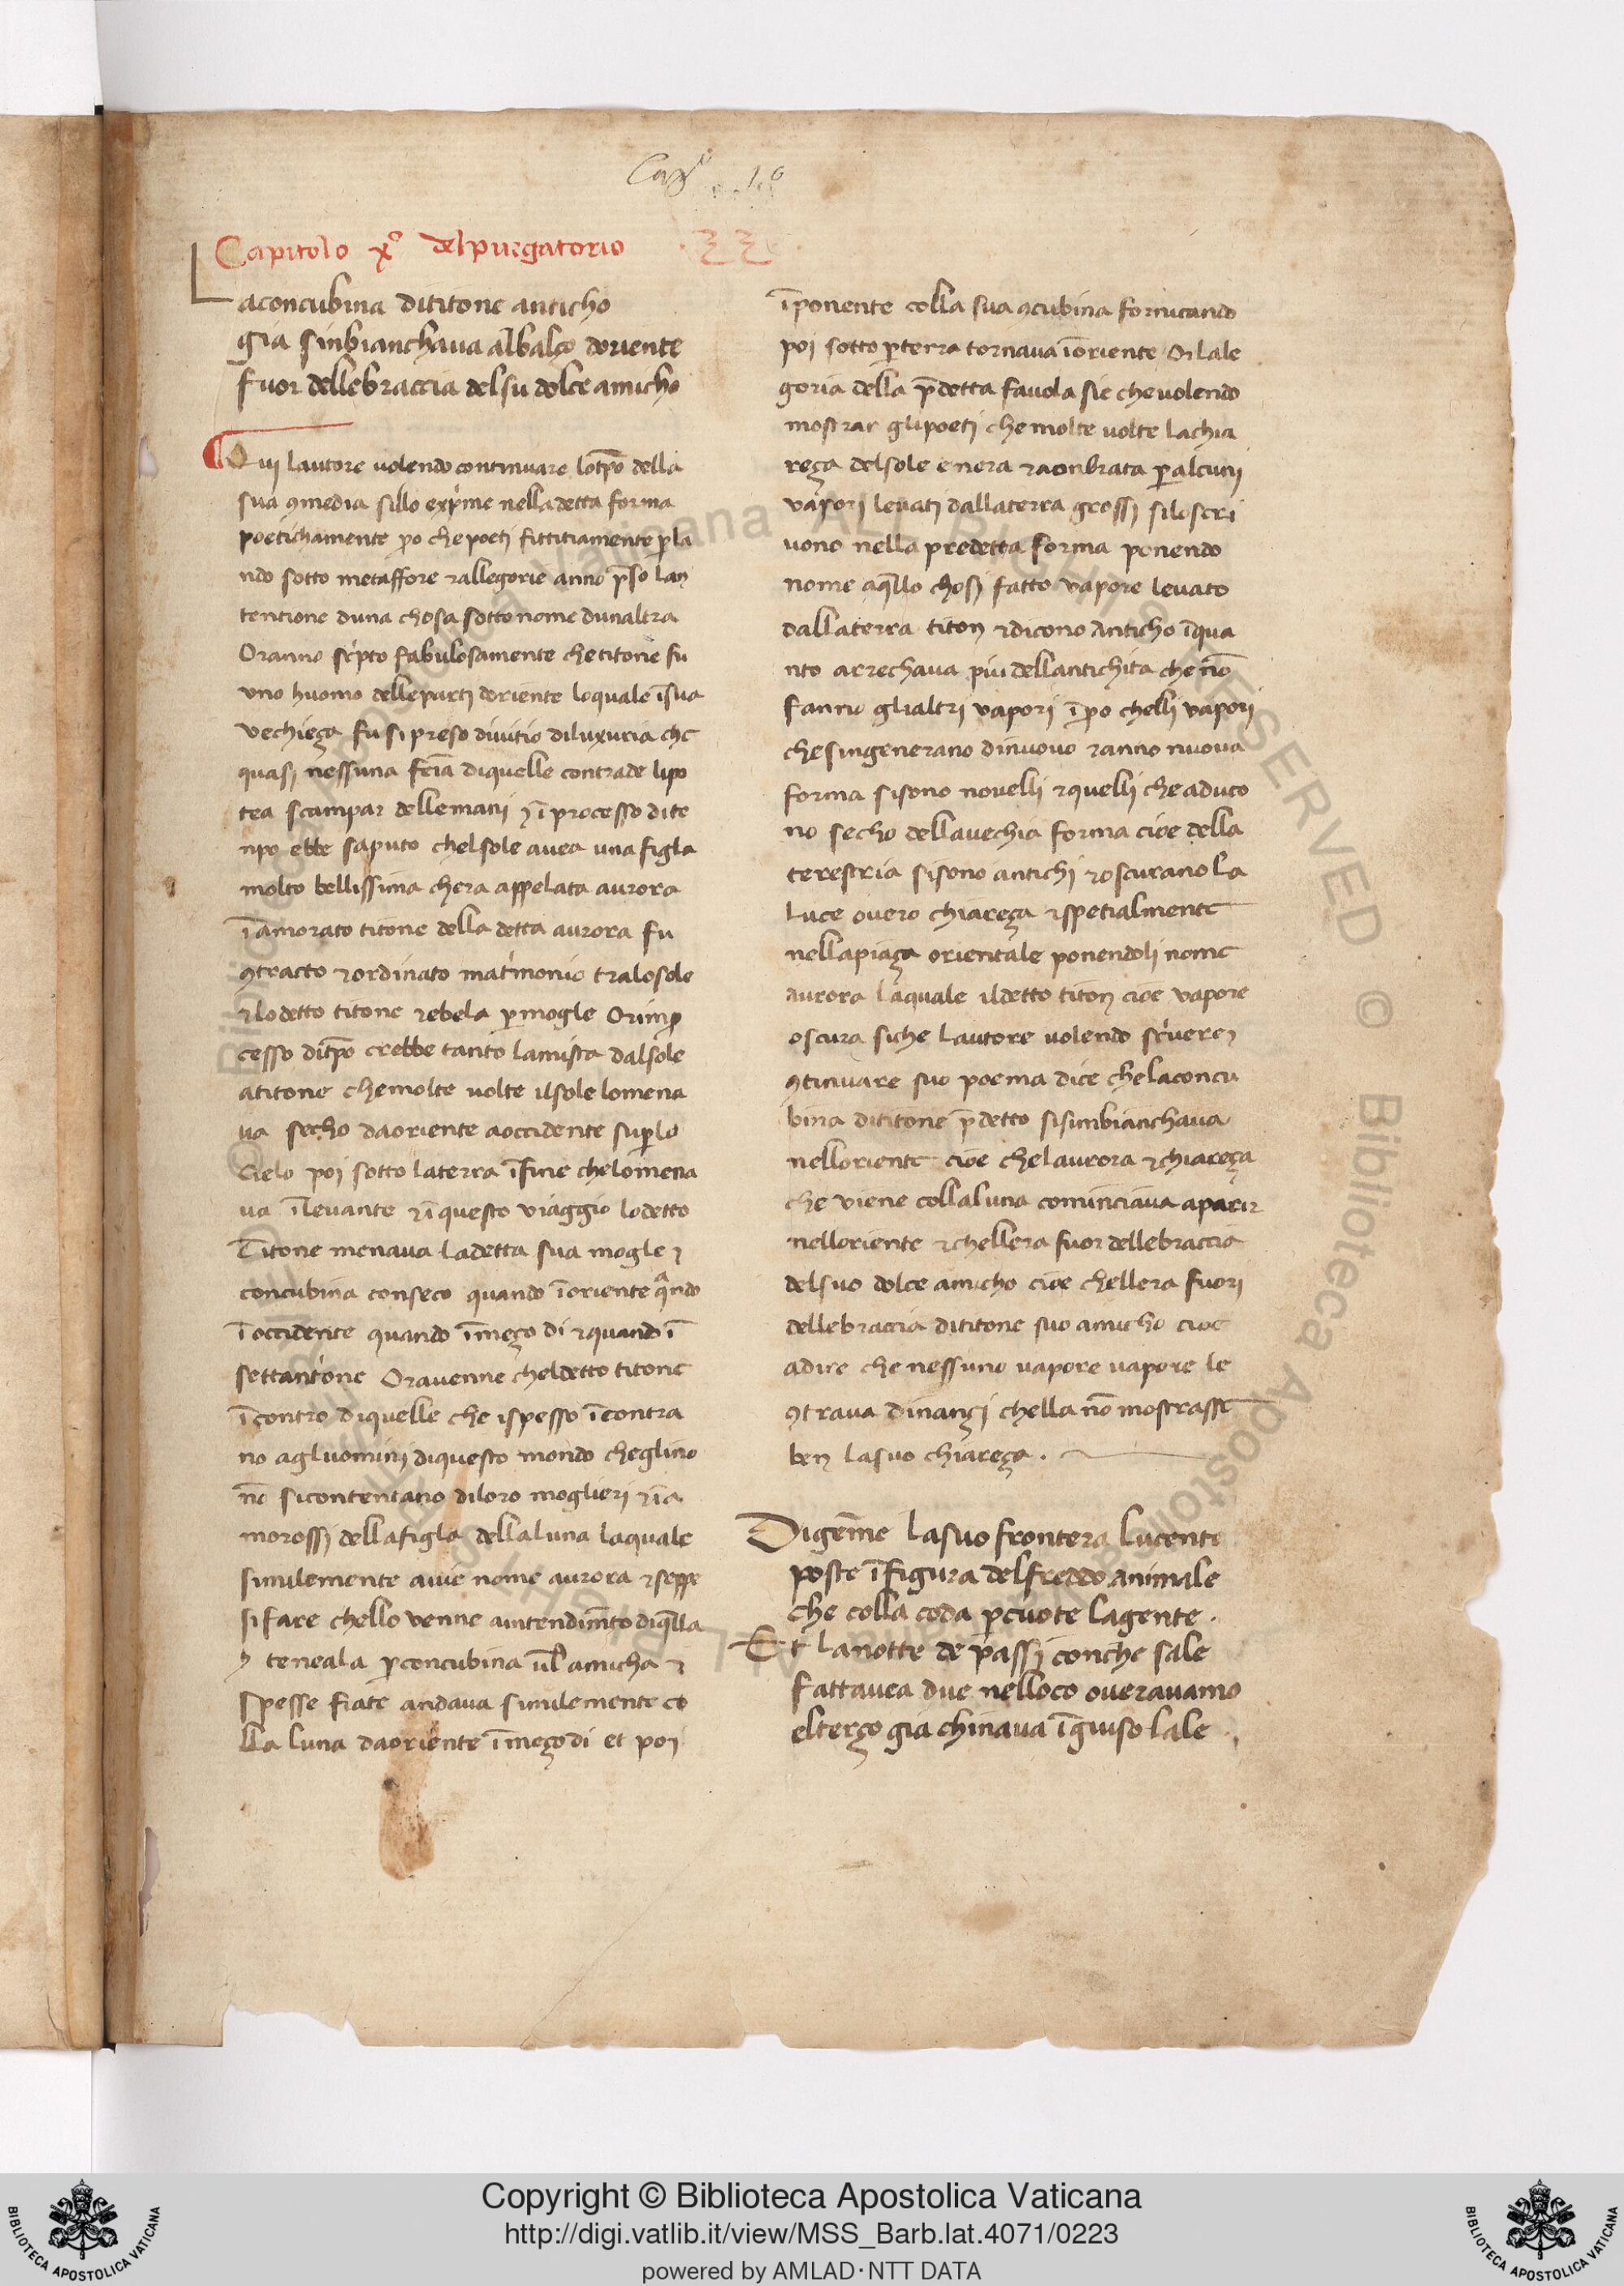 Capº 10
Capitolo xº del purgatorio
L
aconcubina dititone anticho
gia sinbianchava albalço doriente
fuor dellebraccia delsu dolce amicho
Qui lautore volendo continuare lotp̄o della
sua 9media sillo exp̍me nelladetta forma
poetichamente p̄o che poetj fittitiamente p̲la
ndo sotto metaffore ⁊allegorie anno p̄so lan
tentione duna chosa sottonome dunaltra
Oranno sc̍pto fabulosamente chetitone fu
uno huomo dellepartj doriente loquale ī sua
vechieça fu si preso divitio diluxuria che
quasj nessuna fēīa diquelle contrade lipo
tea scampar dellemanj ⁊ ī processo dite
npo ebbe saputo chelsole avea una figla
molto bellissima chera appelata aurora
īamorato titone della detta aurora fu
9tracto ⁊ordinato mat̍monio tralosole
⁊lodetto titone ⁊ebela p̲mogle Orimp̲
cesso ditp̄o crebbe tanto lamista dalsole
atitone chemolte volte ilsole lomena
va secho daoriente aoccidente sup̲lo
cielo poj sotto laterra īfine chelomena
va īlevante ⁊ī questo viaggio lodetto
Titone menava ladetta sua mogle ⁊
concubina conseco quando īoriente q̄ndo
īoccidente quando īmeço di ⁊quando ī
settant̍one Oravenne cheldetto titone
īcontro diquelle che ispesso īcontra
no agluominj diquesto mondo cheglino
nō sicontentano diloro moglierj ⁊īa
morossj dellafigla dellaluna laquale
similemente avie nome aurora ⁊seppe
sifare chello venne aintendim̄to diq̄lla
⁊ teneala p̲concubina ūl amicha ⁊
spesse fiate andava similemente co
lla luna daoriente īmeçodi et poj
īponente colla sua 9cubina fornicando
poj sotto p̲terra tornava īoriente Orlale
goria della p̄detta favola sie chevolendo
mostrar glipoetj chemolte volte lachia
reça delsole e nera ⁊aonbrata p̲alcunj
vaporj levatj dallaterra grossj siloscri
vono nella predetta forma ponendo
nome aq̄llo chosj fatto vapore levato
dallaterra titon ⁊dicono anticho īqua
nto arrechava piu dellantichita che nō
fanno glialtri vapori īp̄o chelli vapori
chesingenerano dinuovo ⁊anno nuova
forma sisono novelli ⁊quelli cheaduco
no secho dellavechia forma cioe della
terestria sisono antichj ⁊oscuranola
luce overo chiareça ⁊spetialmente
nellapiaça orientale ponendolj nome
aurora laquale ildetto titon cioe vapore
oscura siche lautore volendo sc̍vere⁊
9tinuare suo poema dice chelaconcu
bina dititone p̄detto sisimbianchava
nelloriente cioe chelaurora ⁊chiareça
che viene collaluna cominciava aparir
nelloriente ⁊chellera fuor dellebraccia
delsuo dolce amicho cioe chellera fuori
dellebraccia dititone suo amicho cioe
adire che nessuno vapore vapore le
9trava dinançj chella nō mostrasse
ben lasuo chiareça .
Digēme lasuo frontera lucente
poste īfigura delfreddo animale
che colla coda p̲cuote lagente .
Et lanotte de passj conche sale
fattavea due nelloco overavamo
elterço gia chinava īguiso lale .
Copyright © Biblioteca Apostolica Vaticana
http://digi.vatlib.it/view/MSS_Barb.lat.4071/0223
powered by AMLAD·NTT DATA